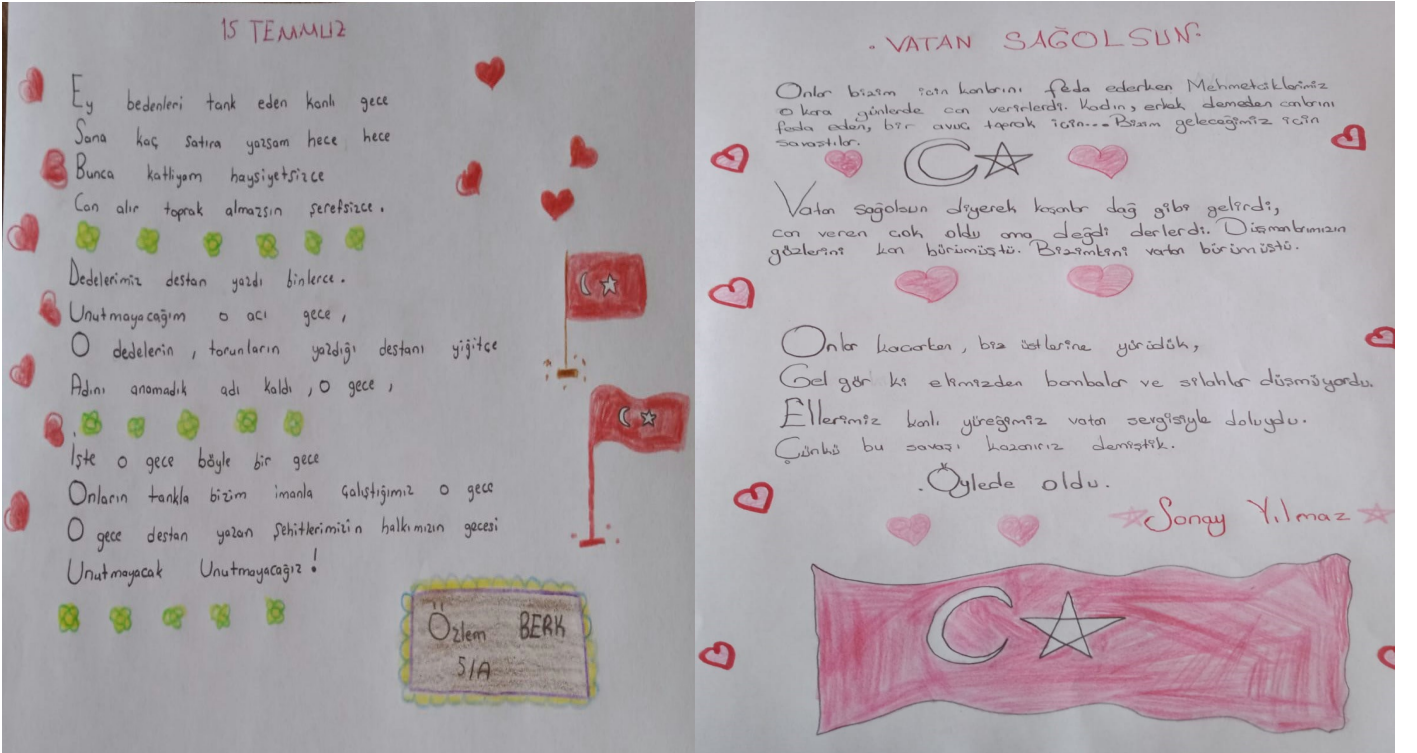 15 TEMMUZ
Ey bedenleri tank eden kanlı gece
Sana kaç satıra yazsam hece hece
Bunca katliyam haysiyetsizce
Can alır toprak almazsın şerefsizce.
Dedelerimiz destan yazdı binlerce.
Unutmayacağım o acı gece,
O dedelerin, torunların yazdığı destanı yiğitçe
Adını anamadık adı kaldı, o gece,
İşte o gece böyle bir gece
Onların tankla bizim imanla çalıştığımız o gece
O gece destan yazan şehitlerimizin halkımızın gecesi
Unutmayacak Unutmayacağız!
Özlem BERK
5/A
. VATAN SAĞOLSUN.
Onlar bizim için kanlarını feda ederken Mehmetciklerimiz
o kara günlerde can verirlerdi. Kadın, erkek demeden canlarını
feda eden, bir avuç toprak için... Bizim geleceğimiz için
savaştılar.
Vatan sağolsun diyerek koşanlar dağ gibi gelirdi,
can veren çok oldu ama değdi derlerdi. Düşmanlarımızın
gözlerini kan bürümüştü. Bizimkini vatan bürümüştü.
Onlar kaçarken, biz üstlerine yürüdük,
Gel gör ki elimizden bombalar ve silahlar düşmüyordu.
Ellerimiz kanlı yüreğimiz vatan sevgisiyle doluydu.
Çünkü bu savaşı kazanırız demiştik.
.Öylede oldu.
Sonay Yılmaz